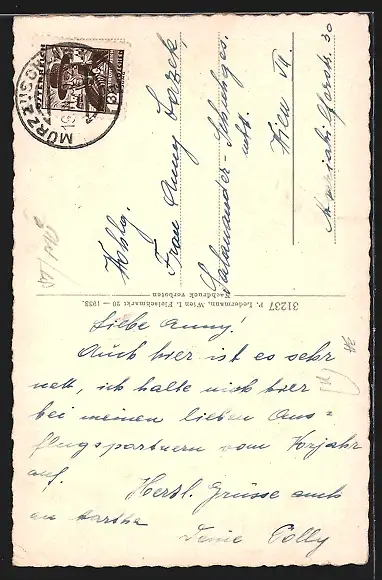 MÜRZZUSCHLAG
Wohlg.
Frau Anny Lazek
Salamander-Schuhges.
mbH.
Wien VII.
Mariahilferstr. 30
31237 P. Ledermann, Wien I. Fleischmarkt 20 — 1933.
Nachdruck verboten
Liebe Anny!
Auch hier ist es sehr
nett, ich halte mich hier
bei meinen lieben Aus=
flugspartnern vom Vorjahr
auf. Herzl. Grüsse auch
an Martha
Deine Polly